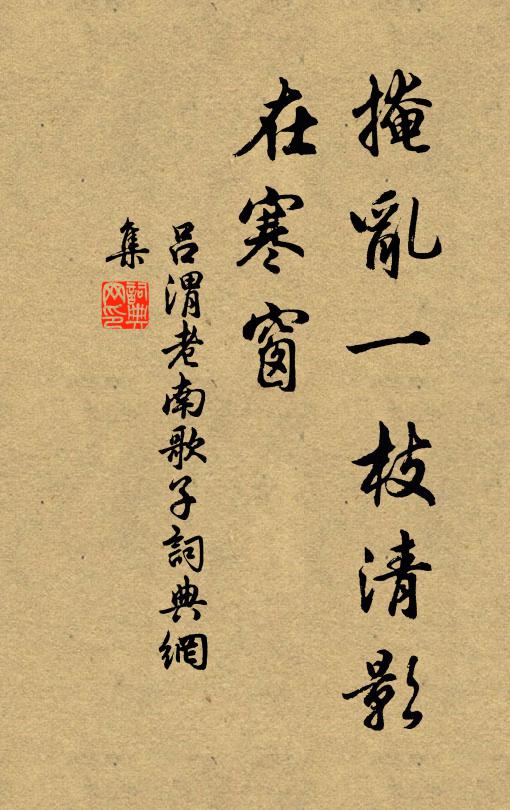 掩亂一枝清影
在寒窗
吕渭老南歌子詞典網
集
詞典
网印